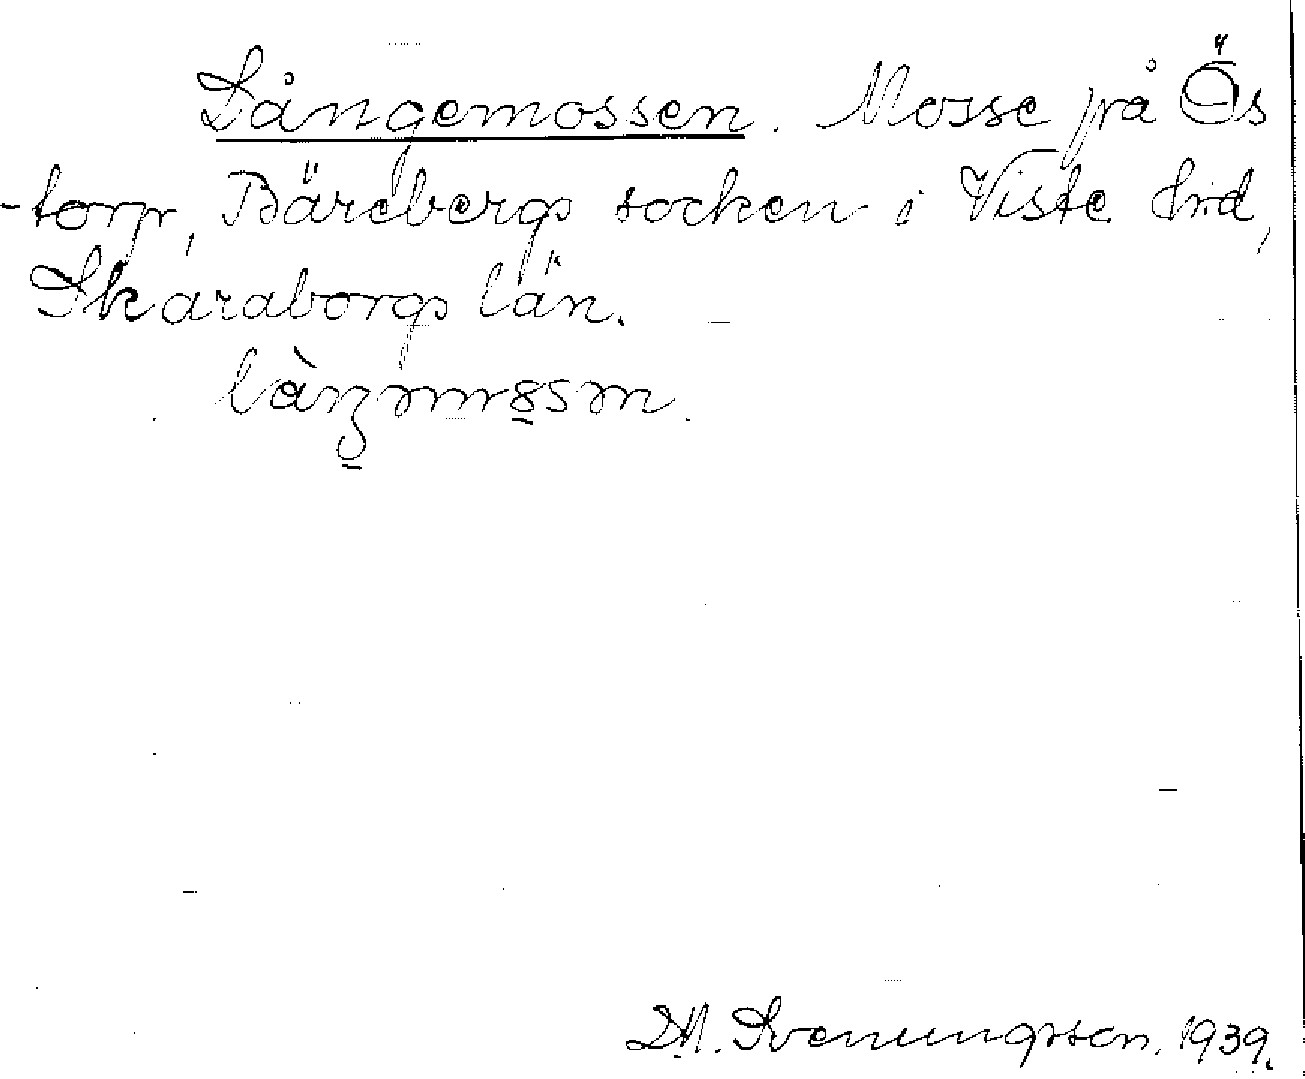 Långemossen. Mosse på Ös
-torp, Bärebergs socken i Viste hrd,
Skaraborgs län.
M. Svenungsson. 1939.